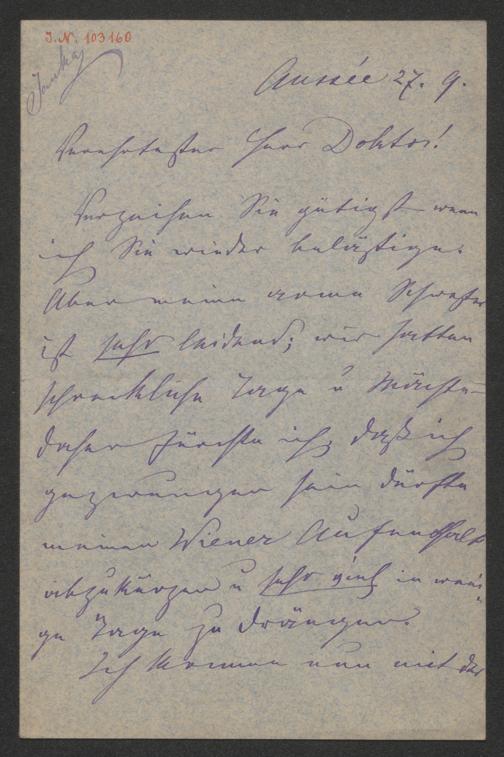 J.N. 103160
Janka
Aussee 27. 9.
Verehrtester Herr Doktor!
Verzeihen Sie gütigst wenn
ich Sie wieder belästige.
Aber meine arme Schwester
ist sehr leidend; wir hatten
schreckliche Tage u Nächte –
daher fürchte ich, daß ich
gezwungen sein dürfte
meinen Wiener Aufenthalt
abzukürzen u sehr viel in weni-
ge Tage zu drängen.
Ich komme nun mit der